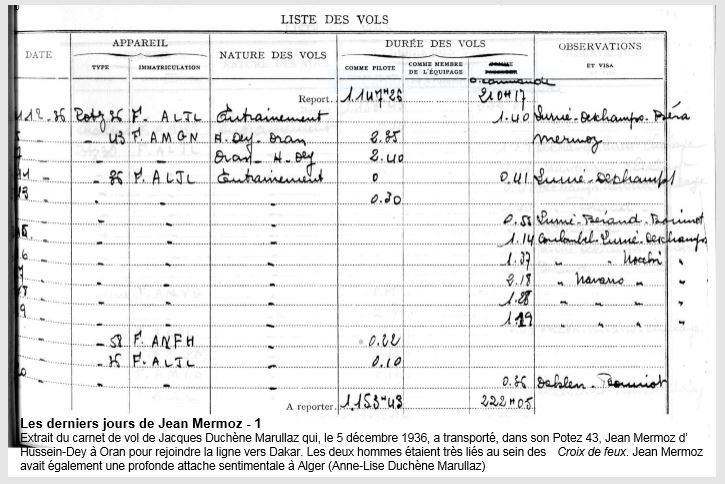 LISTE DES VOLS
DATE
APPAREIL
NATURE DES VOLS
DURÉE DES VOLS
OBSERVATIONS
ET VISA
TYPE
IMMATRICULATION
COMME PILOTE
COMME MEMBRE
DE L'ÉQUIPAGE
Report. 1.147H26 210H17
Potz 36 F. ALJL Entrainement 1.40 Lumié-Deschamps
43 F. AMGN H. Dey-Oran 2.35 Mermoz
Oran-H. Dey 2.40
36 F. ALJL Entrainement 0 0.41 Lumié-Deschamps
0.30
0.55 Lumié-Béraud
1.14 Lumié-Deschamps
1.37 " "
2.18 " Navarro " "
1.28 " " "
1.19 " " "
58 F. ANFH 0.22
36 F. ALJL 0.10
0.36
A reporter. 1.153H43 222H05
Les derniers jours de Jean Mermoz - 1
Extrait du carnet de vol de Jacques Duchène Marullaz qui, le 5 décembre 1936, a transporté, dans son Potez 43, Jean Mermoz d'
Hussein-Dey à Oran pour rejoindre la ligne vers Dakar. Les deux hommes étaient très liés au sein des Croix de feux. Jean Mermoz
avait également une profonde attache sentimentale à Alger (Anne-Lise Duchène Marullaz)